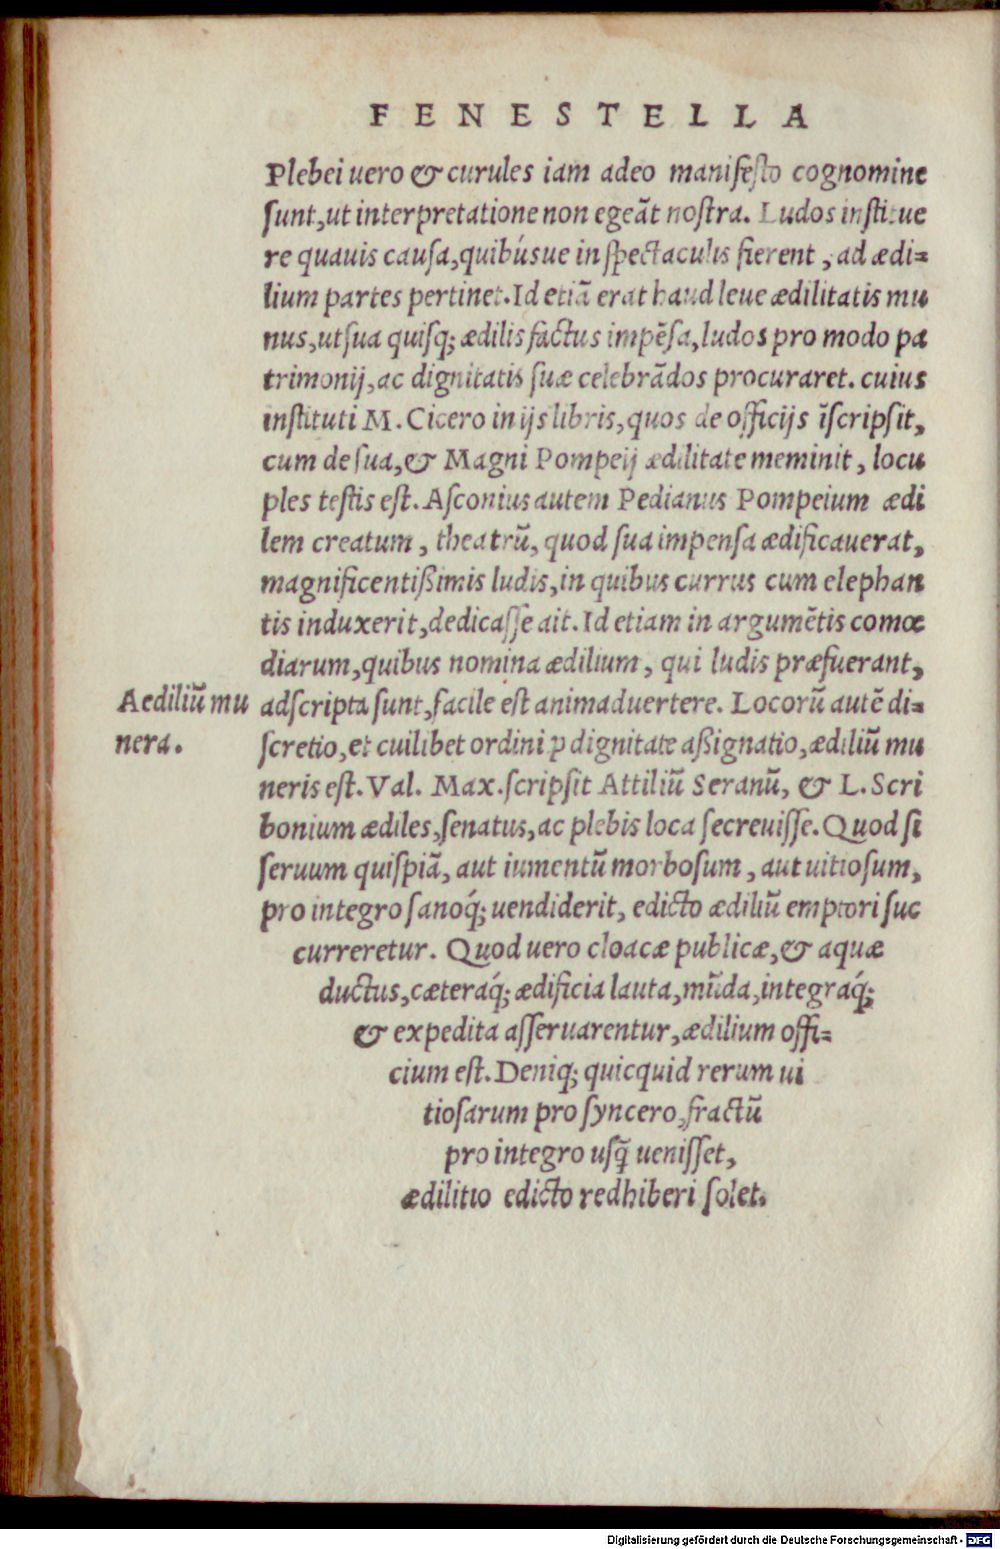 FENESTELLA
Plebei uero & curules iam adeo manifesto cognomine
ſunt, ut interpretatione non egeãt noſtra. Ludos inſtitue
re quauis cauſa, quibúsue in ſpectaculis fierent, ad ædi=
lium partes pertinet. Id etiã erat haud leue ædilitatis mu
nus, ut ſua quiſq; ædilis factus impẽſa, ludos pro modo pa
trimonij, ac dignitatis ſuæ celebrãdos procuraret. cuius
inſtituti M. Cicero in ijs libris, quos de officijs ĩſcripſit,
cum de ſua, & Magni Pompeij ædilitate meminit, locu
ples teſtis eſt. Aſconius autem Pedianus Pompeium ædi
lem creatum, theatrũ, quod ſua impenſa ædificauerat,
magnificentißimis ludis, in quibus currus cum elephan
tis induxerit, dedicaſſe ait. Id etiam in argumẽtis comœ
diarum, quibus nomina ædilium, qui ludis præfuerant,
Aediliũ mu
nera.
adſcripta ſunt, facile eſt animaduertere. Locorũ autẽ di=
ſcretio, et cuilibet ordini ꝓ dignitate aßignatio, ædiliũ mu
neris eſt. Val. Max. ſcripſit Attiliũ Seranũ, & L. Scri
bonium ædiles, ſenatus, ac plebis loca ſecreuiſſe. Quod ſi
ſeruum quiſpiã, aut iumentũ morboſum, aut uitioſum,
pro integro ſanoq́; uendiderit, edicto ædiliũ emptori ſuc
curreretur. Quod uero cloacæ publicæ, & aquæ
ductus, cæteraq́; ædificia lauta, mũda, integraq́;
& expedita aſſeruarentur, ædilium offi=
cium eſt. Deniq; quicquid rerum ui
tioſarum pro ſyncero, fractũ
pro integro uſq̃ ueniſſet,
ædilitio edicto redhiberi ſolet.
Digitalisierung gefördert durch die Deutsche Forschungsgemeinschaft - DFG